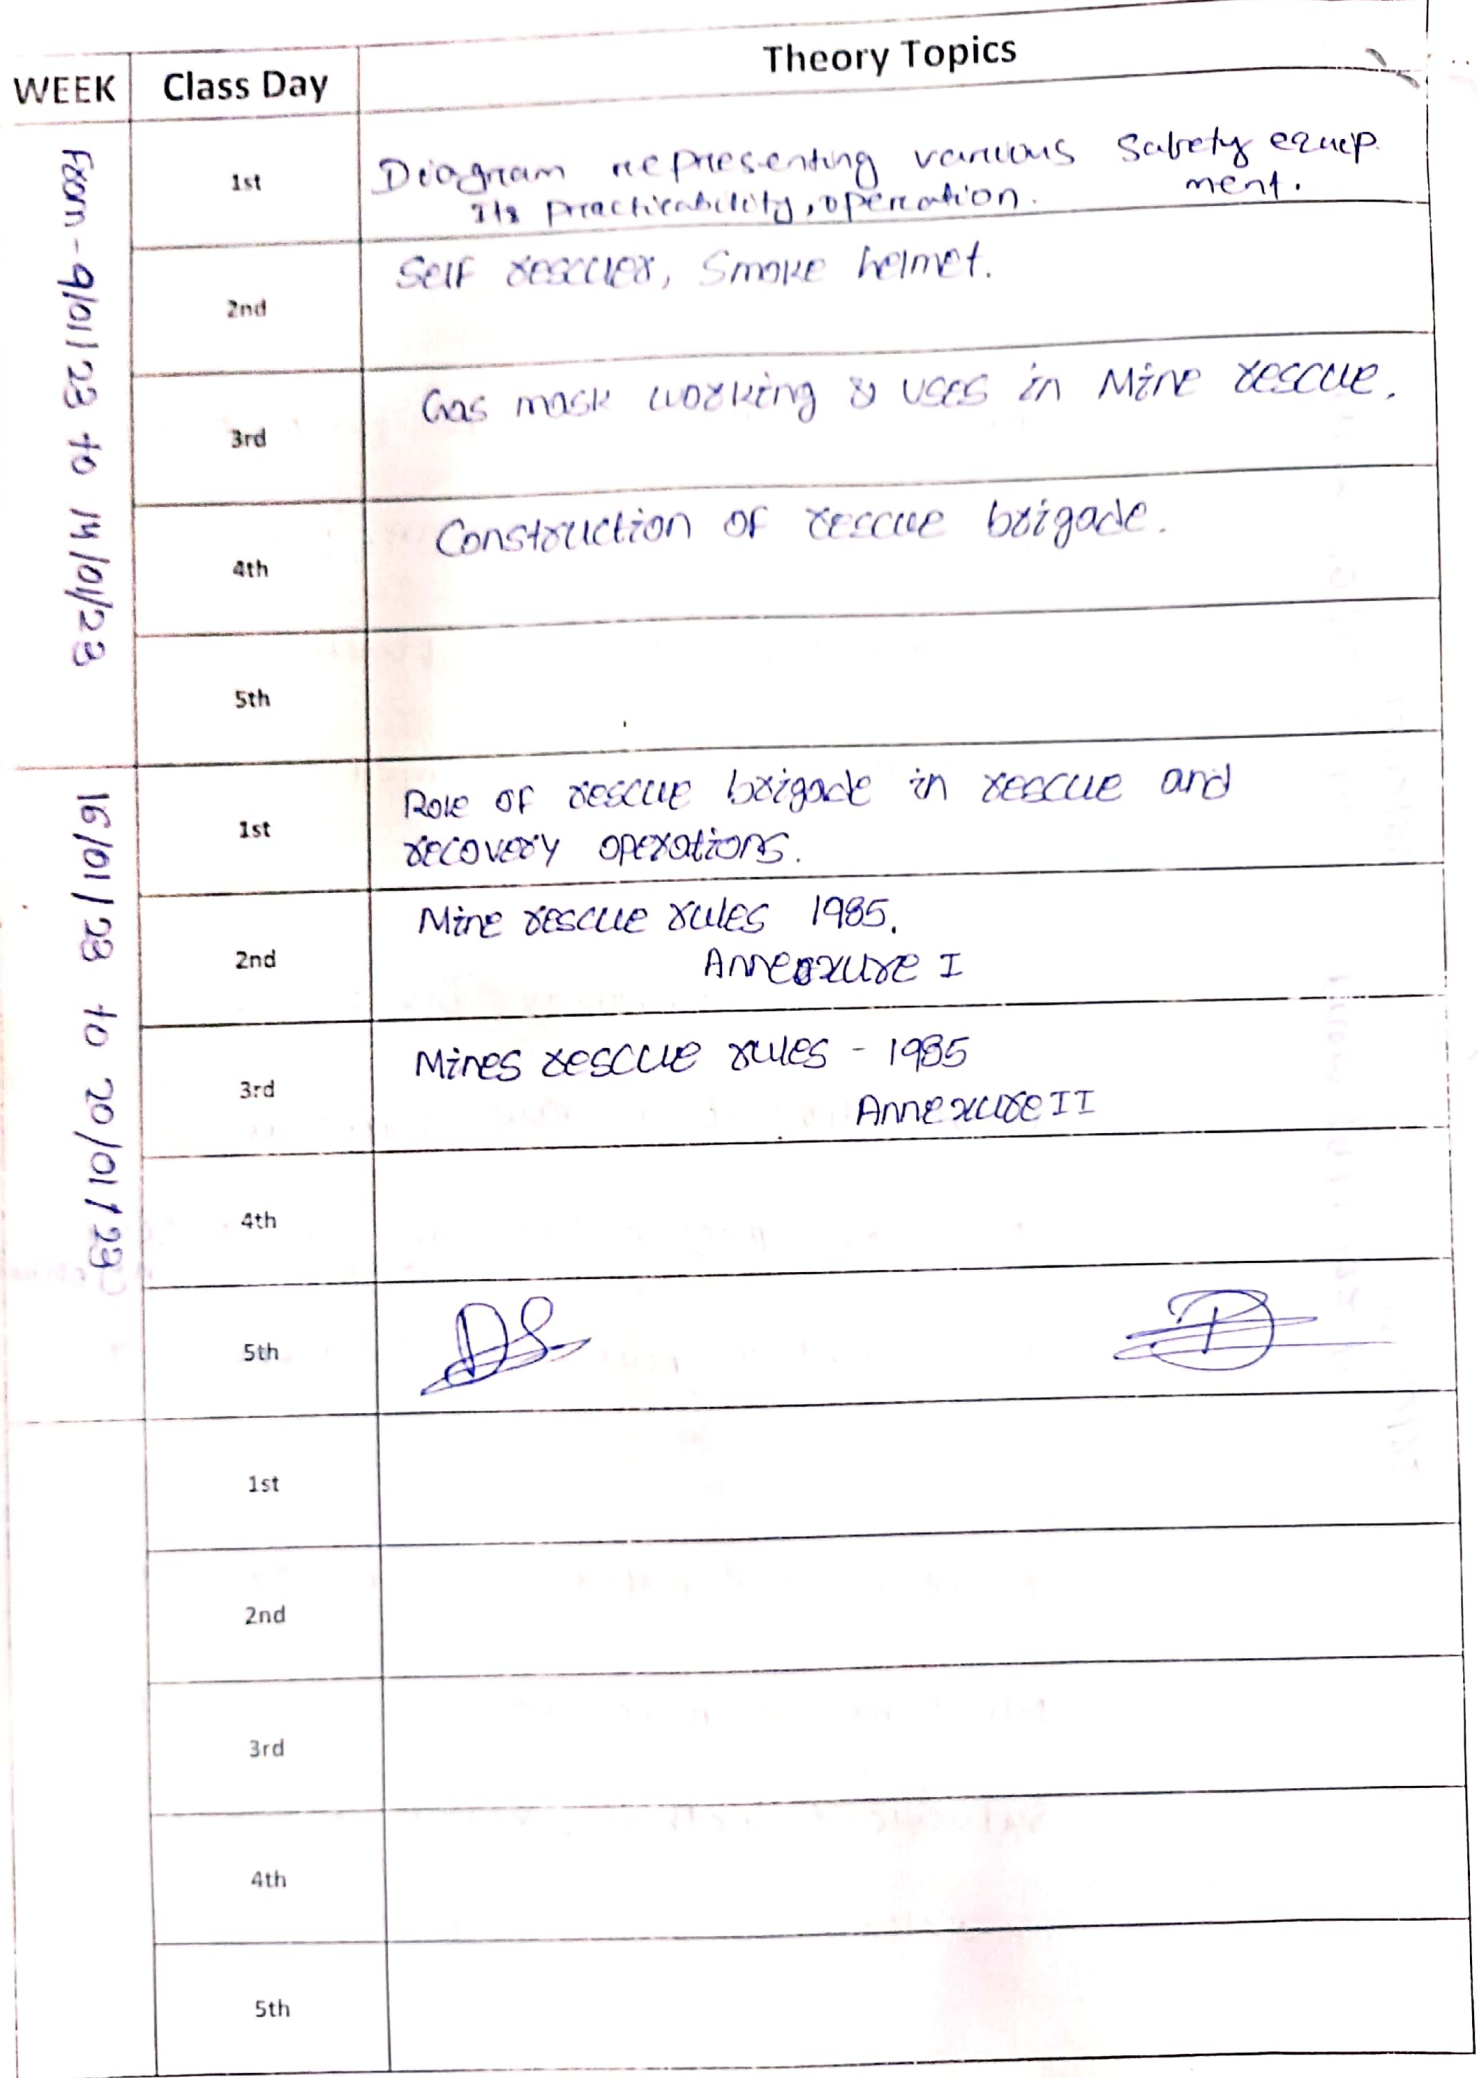 WEEK Class Day Theory Topics
From - 9/01/23 to 14/01/23
1st Diagram representing various Safety equip
ment.
Its practicability, operation.
2nd Self rescuer, Smoke helmet.
3rd Gas mask working & uses in Mine rescue.
4th Construction of rescue brigade.
5th
16/01/23 to 20/01/23
1st Role of rescue brigade in rescue and
recovery operations.
2nd Mine rescue rules 1985.
Annexure I
3rd Mines rescue rules - 1985
Annexure II
4th
5th
1st
2nd
3rd
4th
5th